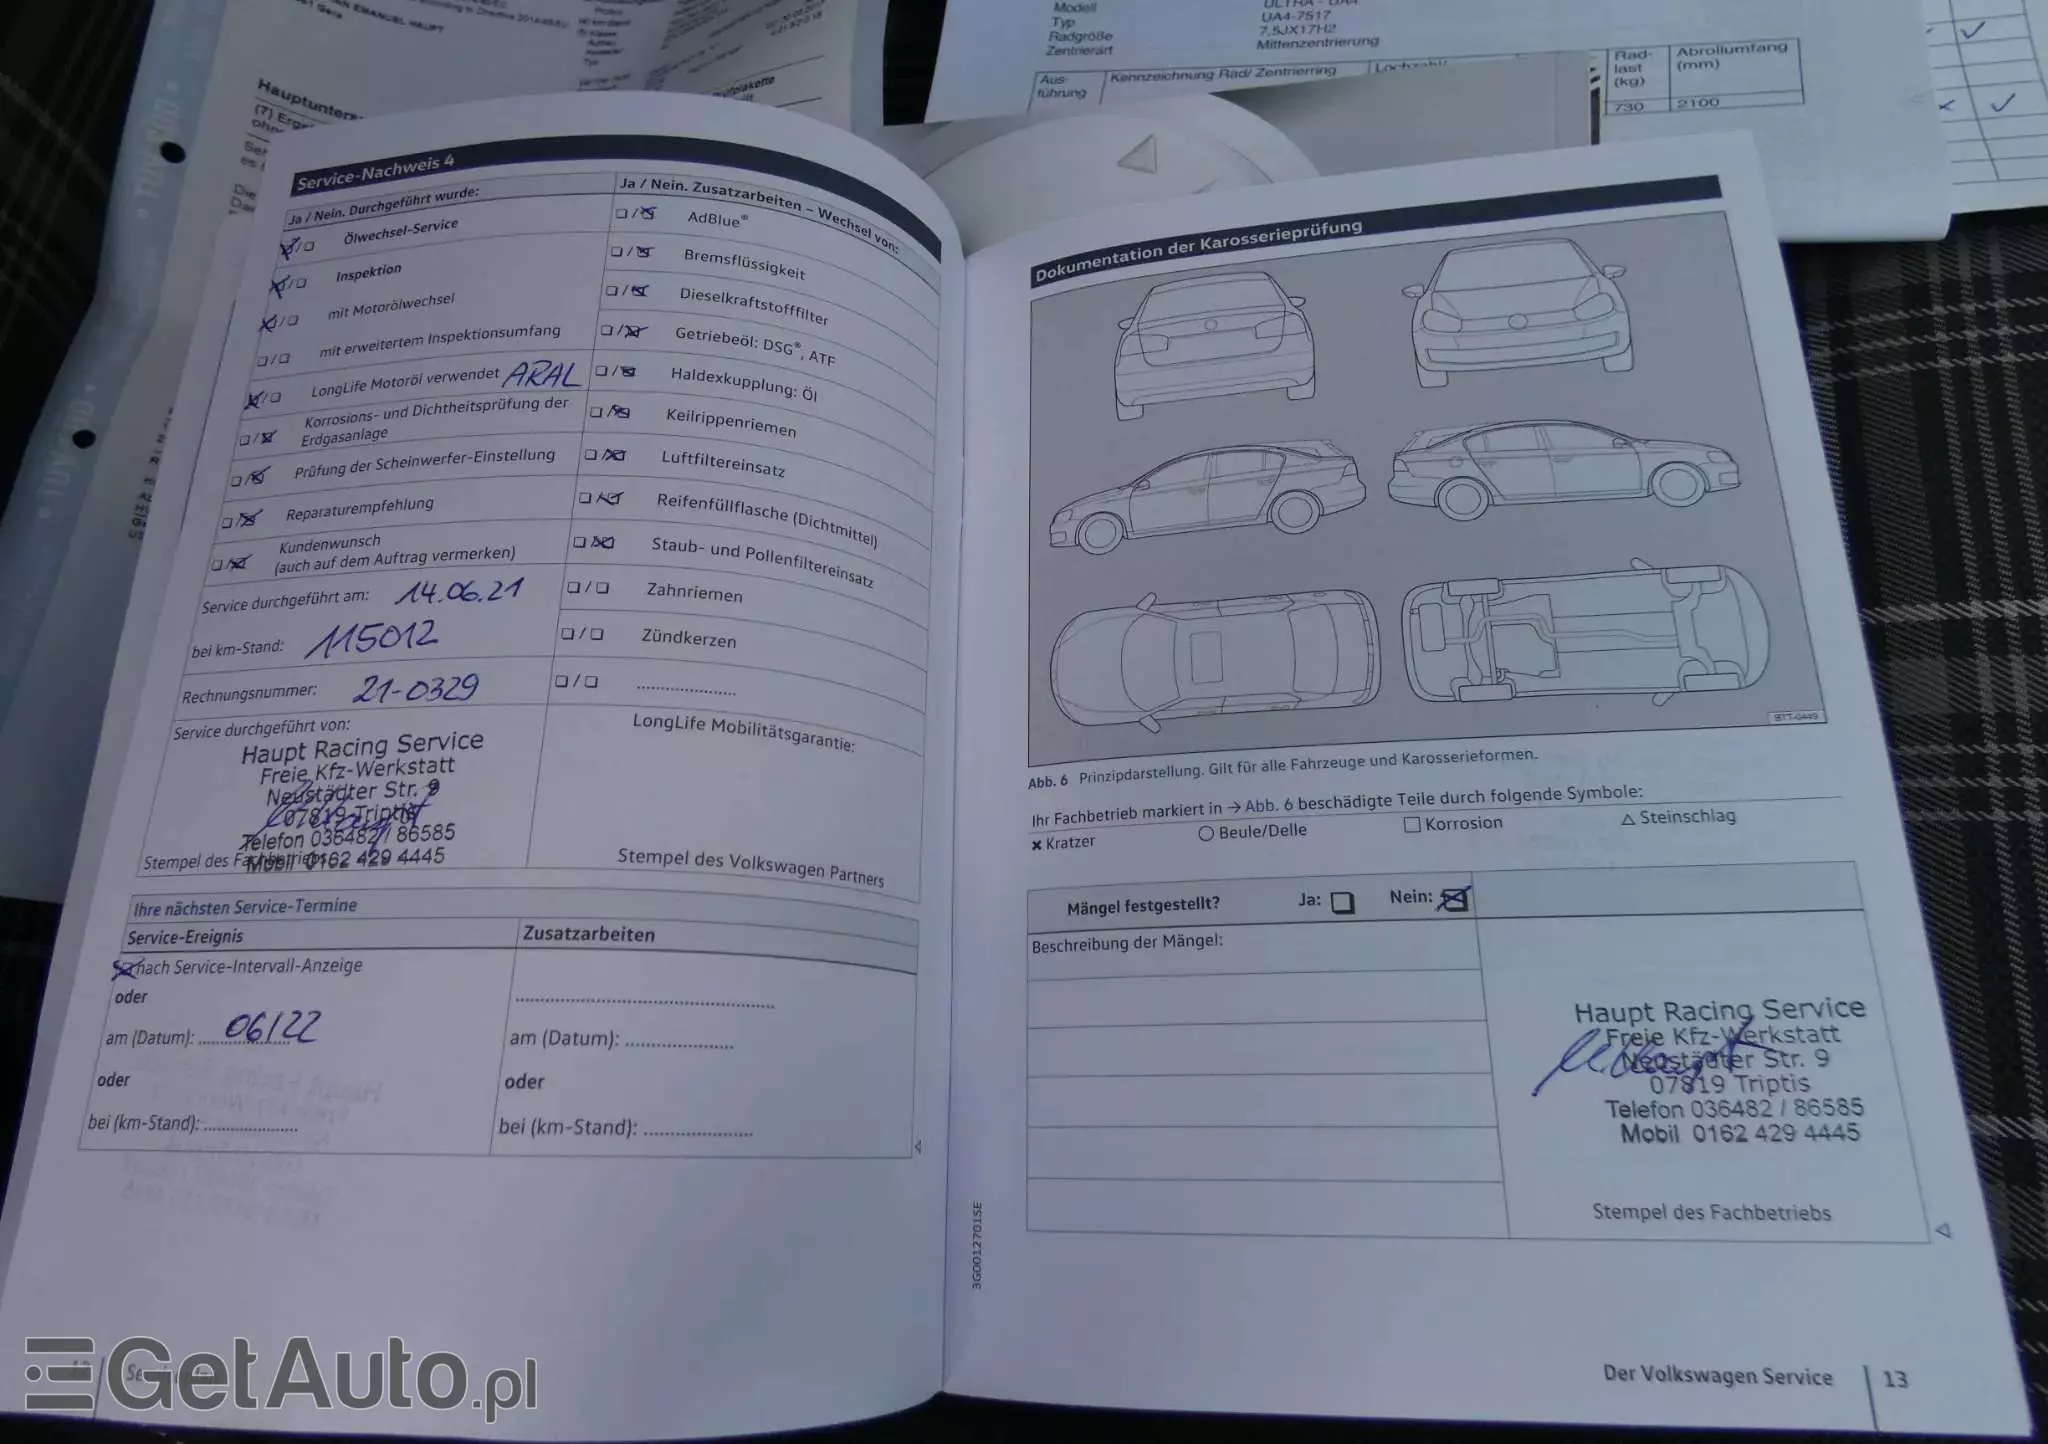 EMANUEL HAUPT
Gera
Modell
Typ
UA4-7517
Radgröße
7,5JX17H2
Zentrierart
Mittenzentrierung
Aus-
führung
Kennzeichnung Rad/ Zentrierring
Rad-
last
(kg)
Abrollumfang
(mm)
730
2100
Service-Nachweis 4
Ja / Nein. Durchgeführt wurde:
Ölwechsel-Service
Inspektion
mit Motorölwechsel
mit erweitertem Inspektionsumfang
LongLife Motoröl verwendet ARAL
Korrosions- und Dichtheitsprüfung der
Erdgasanlage
Prüfung der Scheinwerfer-Einstellung
Reparaturempfehlung
Kundenwunsch
(auch auf dem Auftrag vermerken)
Service durchgeführt am: 14.06.21
bei km-Stand: 115012
Rechnungsnummer: 21-0329
Service durchgeführt von:
Haupt Racing Service
Freie Kfz-Werkstatt
Neustädter Str. 9
07819 Triptis
Telefon 036482 / 86585
Mobil 0162 429 4445
Stempel des Fachbetriebs
Ja / Nein. Zusatzarbeiten – Wechsel von:
AdBlue®
Bremsflüssigkeit
Dieselkraftstofffilter
Getriebeöl: DSG®, ATF
Haldexkupplung: Öl
Keilrippenriemen
Luftfiltereinsatz
Reifenfüllflasche (Dichtmittel)
Staub- und Pollenfiltereinsatz
Zahnriemen
Zündkerzen
LongLife Mobilitätsgarantie:
Stempel des Volkswagen Partners
Ihre nächsten Service-Termine
Service-Ereignis
Zusatzarbeiten
nach Service-Intervall-Anzeige
oder
am (Datum): 06/22
oder
bei (km-Stand):
am (Datum):
oder
bei (km-Stand):
Dokumentation der Karosserieprüfung
BTT-0449
Abb. 6 Prinzipdarstellung. Gilt für alle Fahrzeuge und Karosserieformen.
Ihr Fachbetrieb markiert in → Abb. 6 beschädigte Teile durch folgende Symbole:
Kratzer
Beule/Delle
Korrosion
Steinschlag
Mängel festgestellt?
Ja:
Nein:
Beschreibung der Mängel:
Haupt Racing Service
Freie Kfz-Werkstatt
Neustädter Str. 9
07819 Triptis
Telefon 036482 / 86585
Mobil 0162 429 4445
Stempel des Fachbetriebs
3G0012701SE
Der Volkswagen Service
13
GetAuto.pl